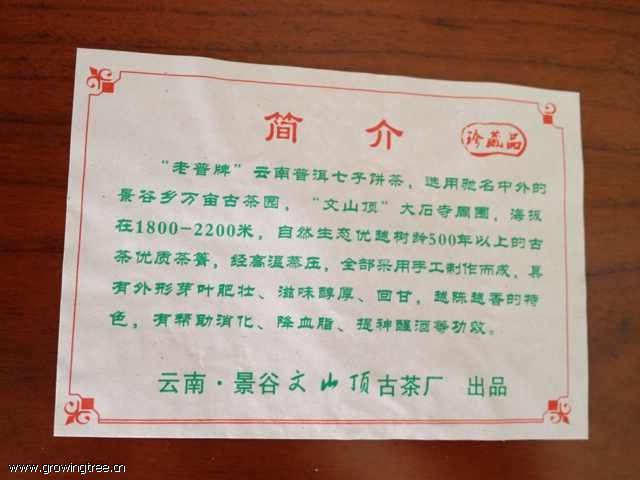 简 介
珍藏品
“老普牌”云南普洱七子饼茶，选用驰名中外的
景谷乡万亩古茶园，“文山顶”大石寺周围，海拔
在1800-2200米，自然生态优越树龄500年以上的古
茶优质茶箐，经高温蒸压，全部采用手工制作而成，具
有外形芽叶肥壮、滋味醇厚、回甘，越陈越香的特
色，有帮助消化、降血脂、提神醒酒等功效。
云南·景谷文山顶古茶厂 出品
www.growingtree.cn